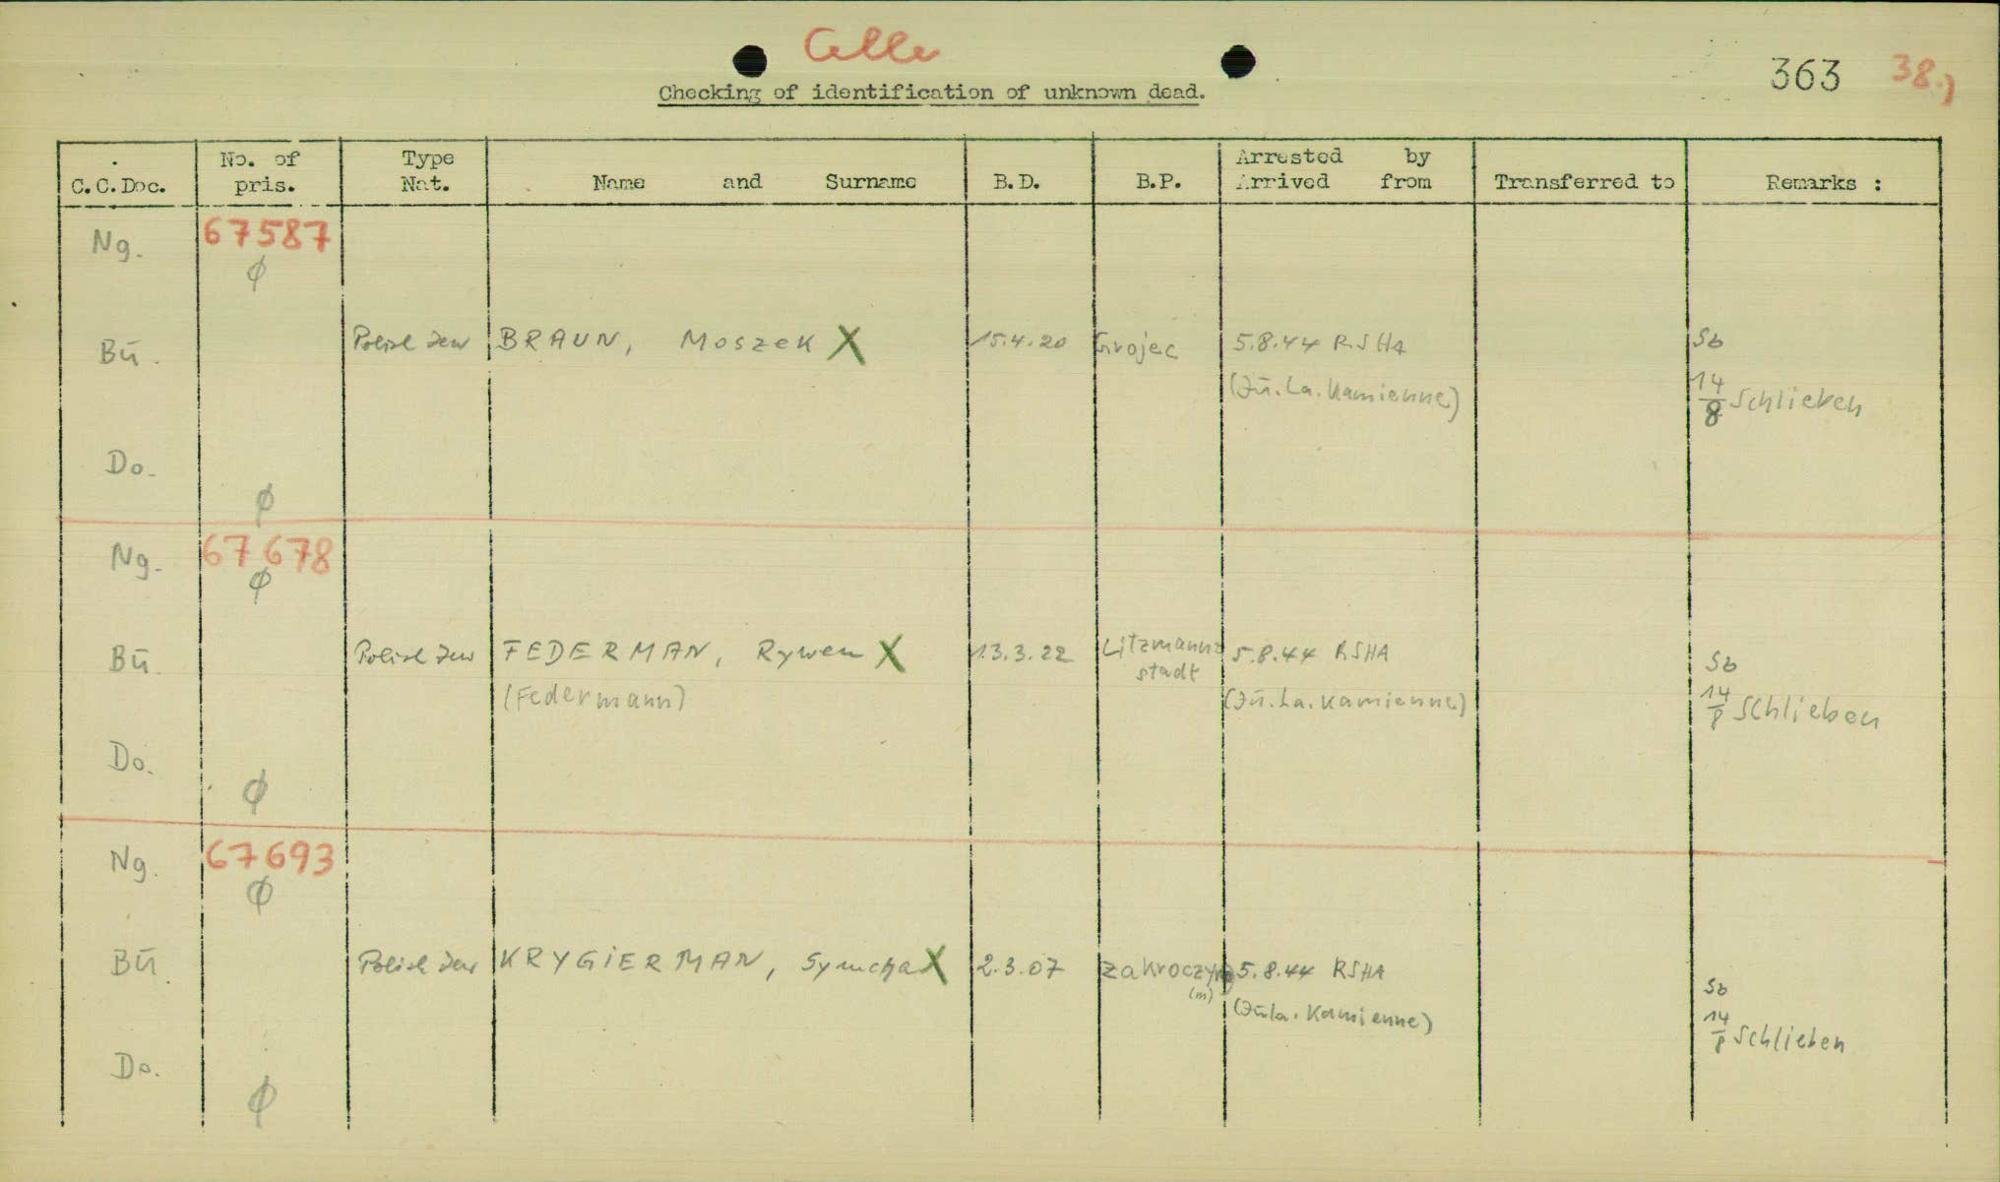 Celle
363 38.)
Checking of identification of unknown dead.
C.C.Doc. No. of pris. Type Nat. Name and Surname B.D. B.P. Arrested by Arrived from Transferred to Remarks :
Ng. 67587
φ
Bū. Polish Jew BRAUN, Moszek X 15.4.20 Grojec 5.8.44 RSHA Sb
(Jū.La.Kamienne) 14/8 Schlieben
Do.
φ
Ng. 67678
φ
Bū Polish Jew FEDERMAN, Rywen X 13.3.22 Litzmann- 5.8.44 RSHA Sb
stadt
(Federmann) (Jū.La.Kamienne) 14/8 Schlieben
Do.
φ
Ng. 67693
φ
Bū Polish Jew KRYGIERMAN, Symcha X 2.3.07 Zakroczym 5.8.44 RSHA Sb
(m)
(Jūla.Kamienne) 14/8 Schlieben
Do.
φ